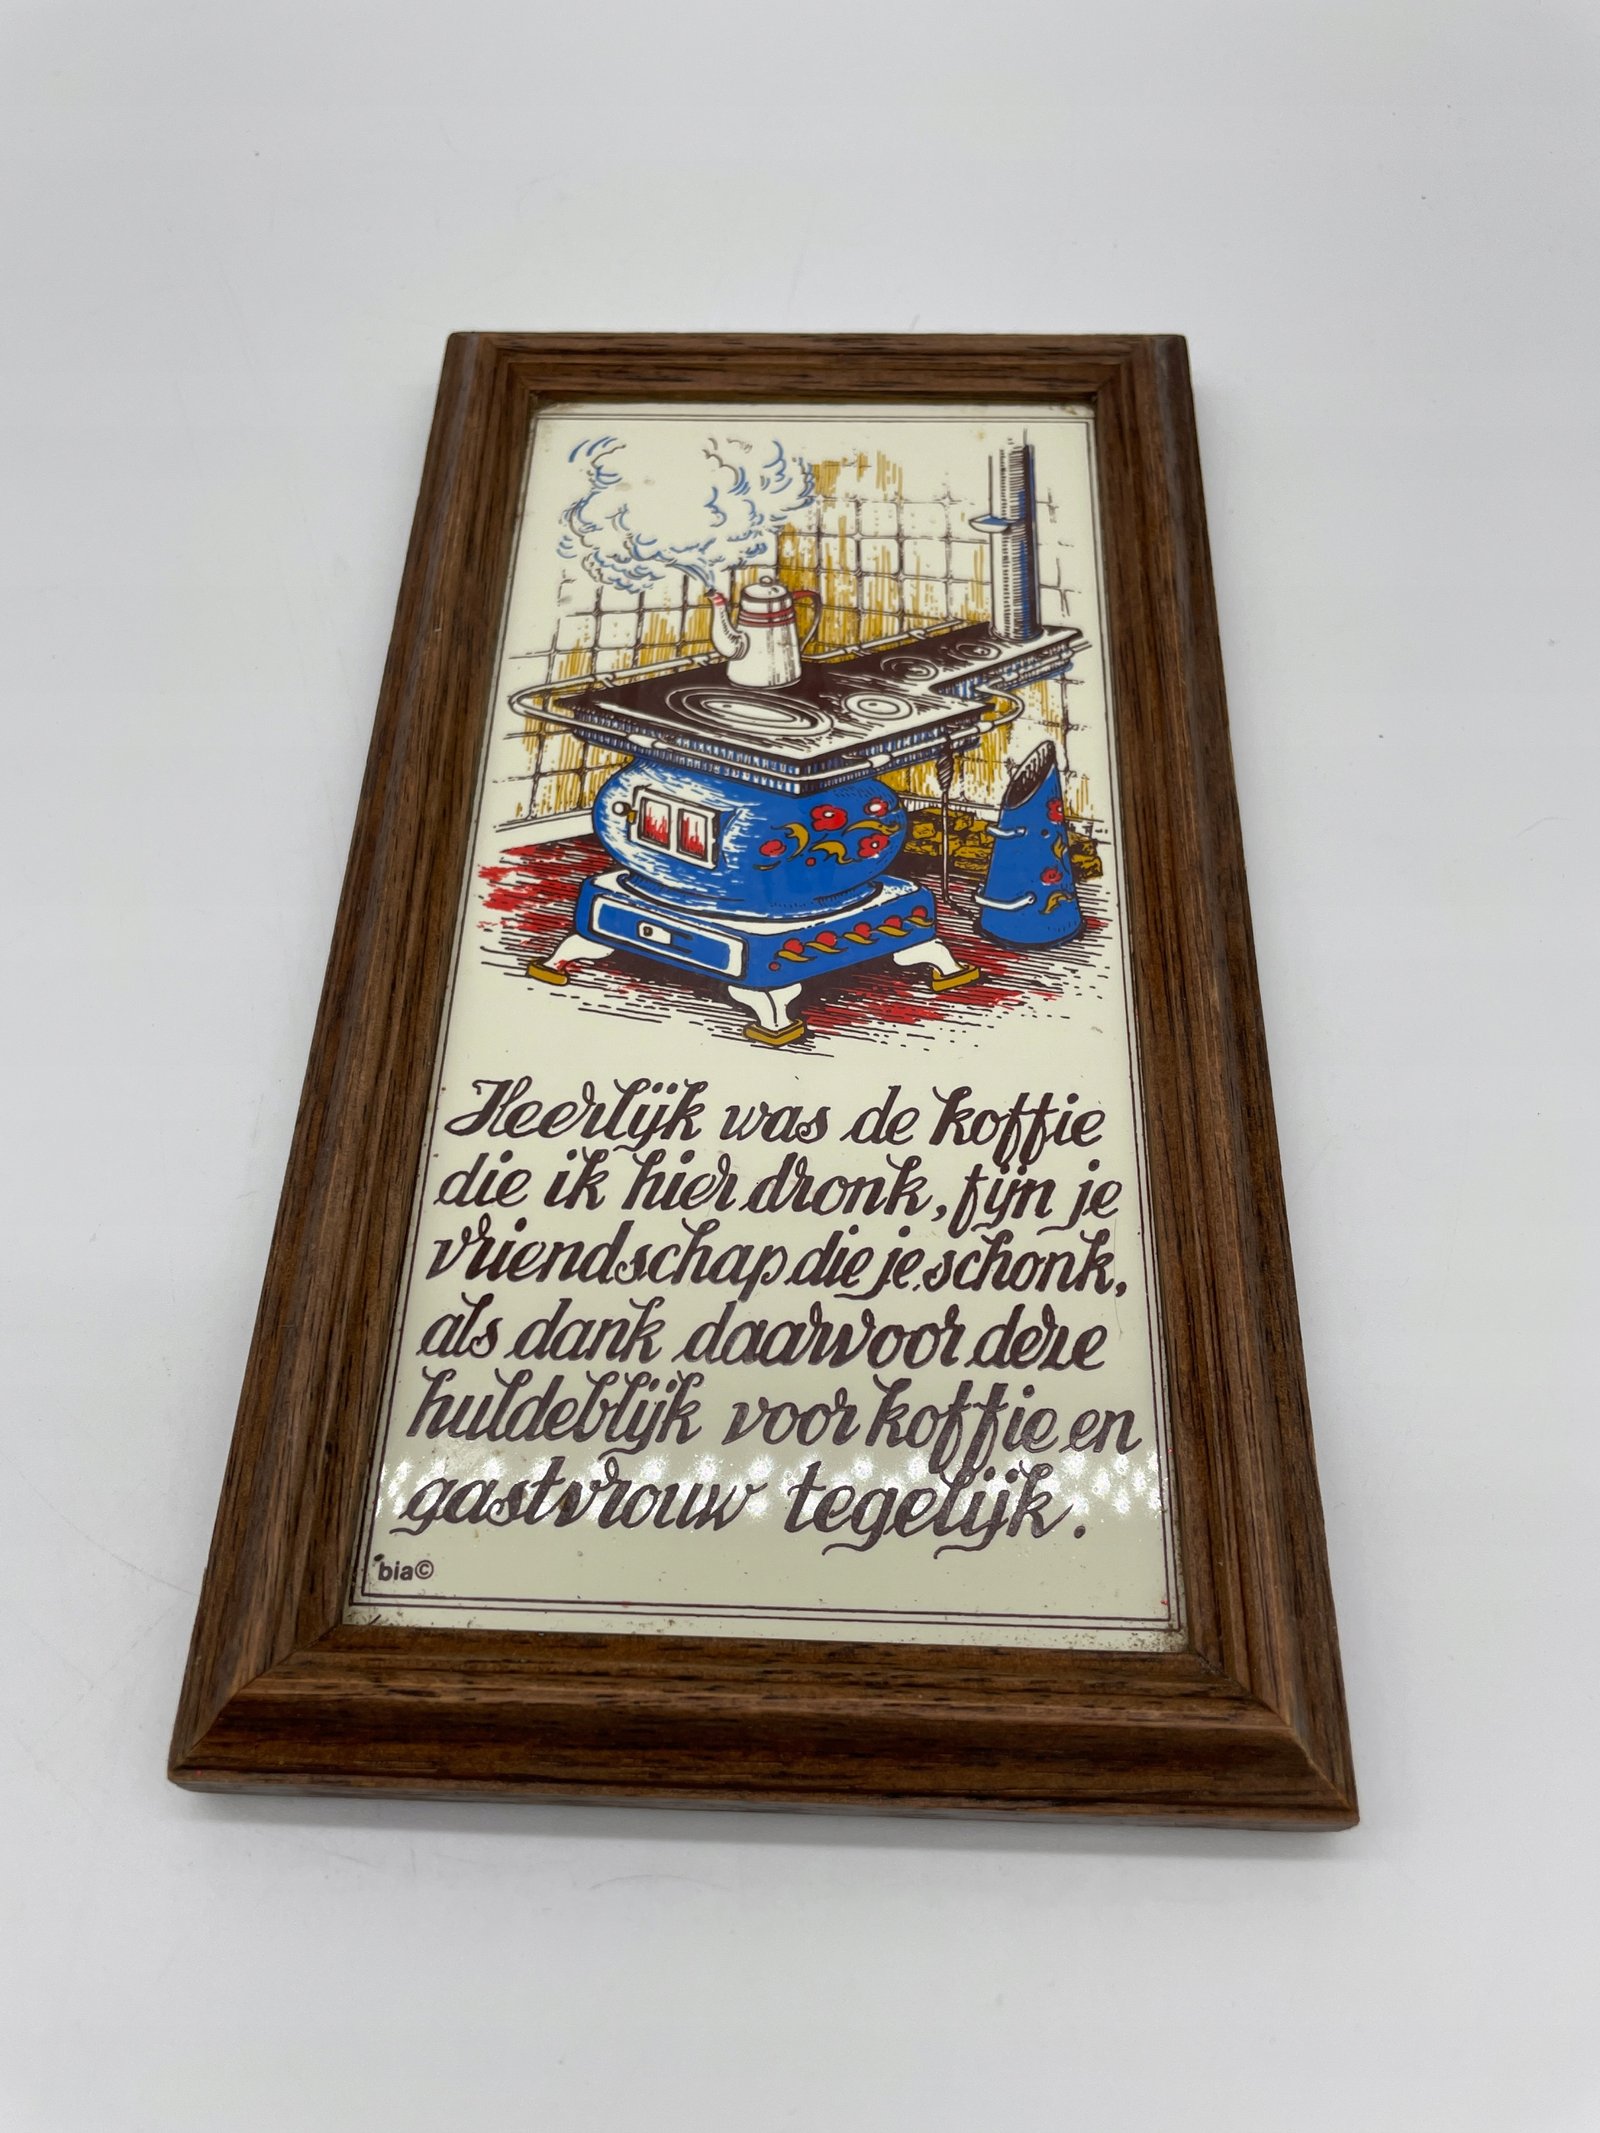 Heerlijk was de koffie
die ik hier dronk, fijn je
vriendschap die je schonk,
als dank daarvoor deze
huldeblijk voor koffie en
gastvrouw tegelijk.
bia©